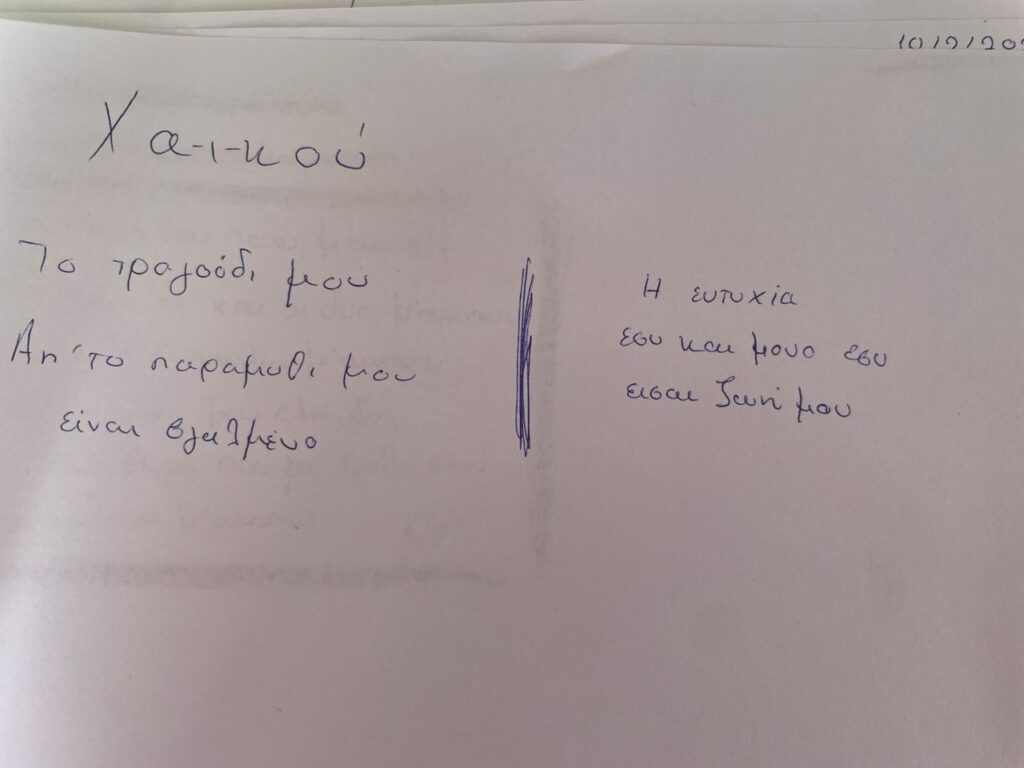 10/2/20
Χα-ι-κού
Το τραγούδι μου
Απ' το παραμυθι μου
είναι βγαλμένο
Η ευτυχία
εσυ και μονο εσυ
εισαι ζωή μου